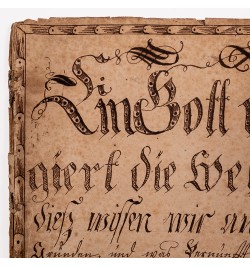 Ein Gott
giert die Wel
dieß wissen wir au
Gründen, und was Vernunft